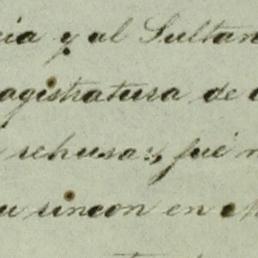 cia y al Sultan
agistratura de
rehusar, fué
su rincon en